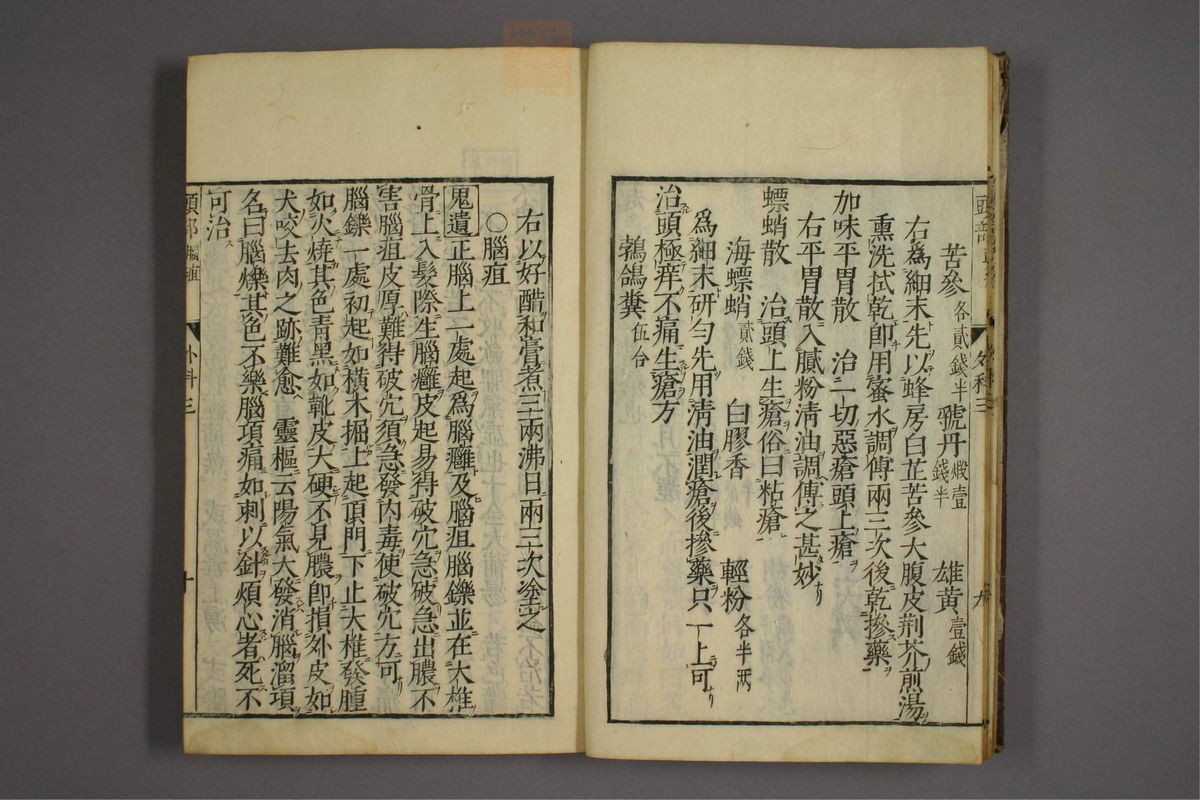 苦參各貳錢半 虢丹煅壹錢半 雄黃壹錢
右爲細末先以蜂房白芷苦參大腹皮荆芥煎湯
熏洗拭乾卽用蜜水調傅兩三次後乾摻藥
加味平胃散 治一切惡瘡頭上瘡
右平胃散入膩粉淸油調傅之甚妙
螵蛸散 治頭上生瘡俗曰粘瘡
海螵蛸貳錢 白膠香 輕粉各半兩
爲細末研勻先用淸油潤瘡後摻藥只一上可
治頭極痒不痛生瘡方
鵓鴿糞伍合
外科三
九
右以好醋和膏煮三兩沸日兩三次塗之
○腦疽
鬼遺正腦上一處起爲腦癰及腦疽腦鑠並在大椎
骨上入髮際生腦癰皮起易得破穴急破急出膿不
害腦疽皮厚難得破穴須急發內毒使破穴方可
腦鑠一處初起如橫木掘上起頂門下止大椎發腫
如火燒其色靑黑如靴皮大硬不見膿卽損外皮如
犬咬去肉之跡難愈 靈樞云陽氣大發消腦溜項
名曰腦爍其色不藥腦項痛如刺以針煩心者死不
可治
頭部 腦疽 外科三 十